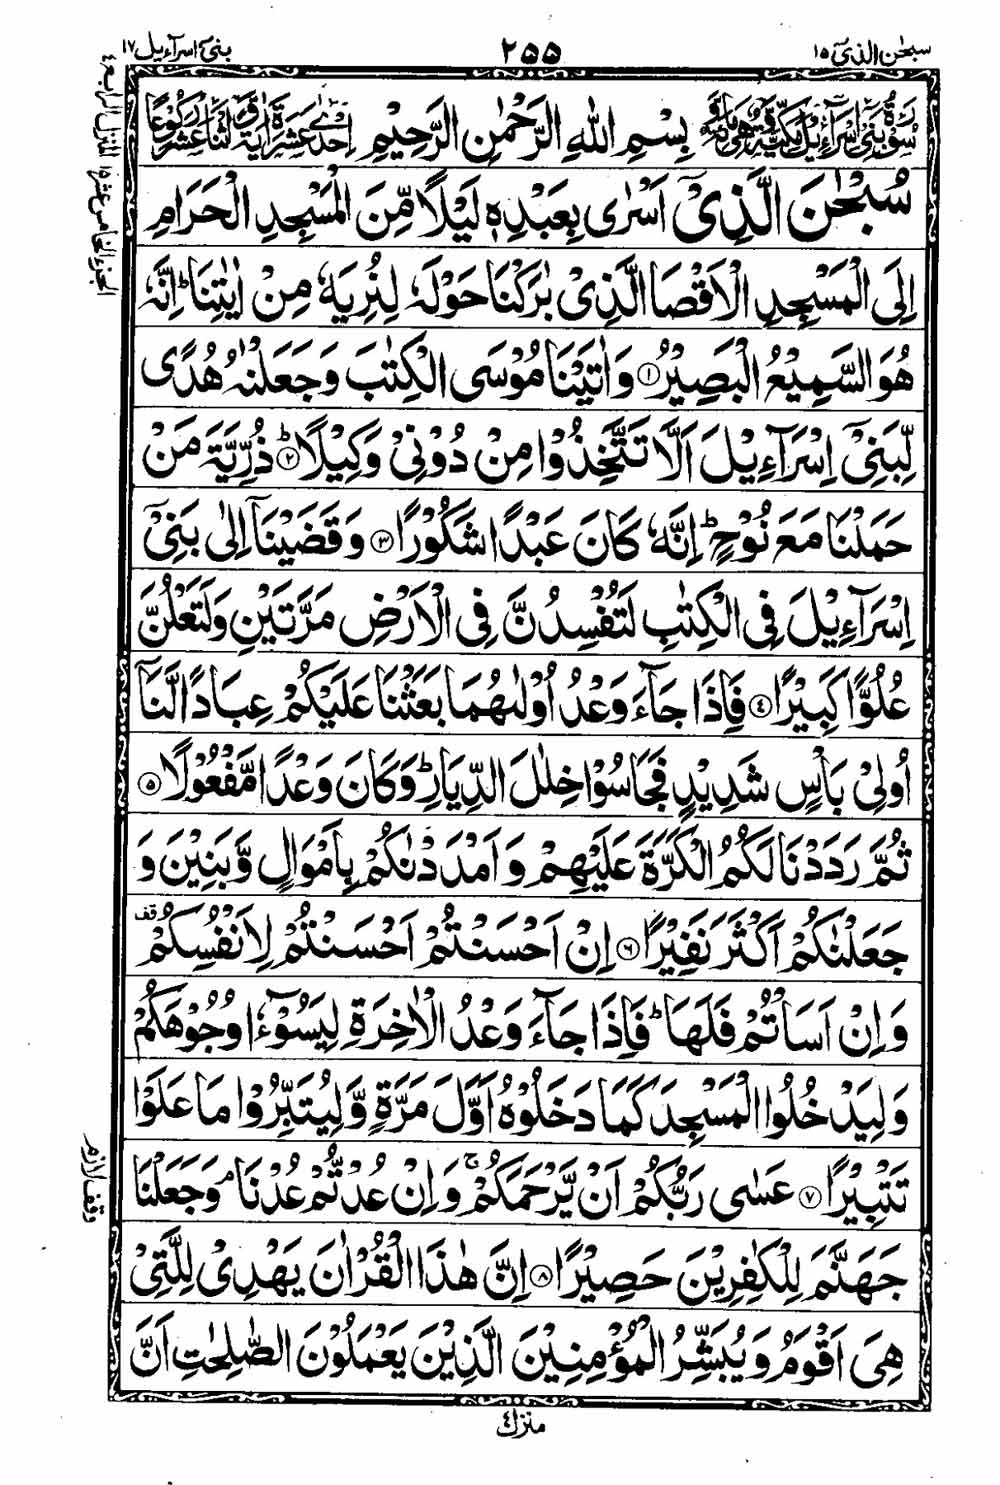 سبحٰن الذیٓ ١٥
٢٥٥
بنیٓ اسرآءیل ١٧
سُوْرَةُ بَنِیْٓ اِسْرَآءِیْلَ مَكِّیَّةٌ وَّهِیَ مِائَةٌ بِسْمِ اللهِ الرَّحْمٰنِ الرَّحِیْمِ اِحْدٰى عَشَرَةَ اٰیَةً وَّاثْنَا عَشَرَ رُكُوْعًا
سُبْحٰنَ الَّذِیْٓ اَسْرٰى بِعَبْدِهٖ لَیْلًا مِّنَ الْمَسْجِدِ الْحَرَامِ
اِلَى الْمَسْجِدِ الْاَقْصَا الَّذِیْ بٰرَكْنَا حَوْلَهٗ لِنُرِیَهٗ مِنْ اٰیٰتِنَا ؕ اِنَّهٗ
هُوَ السَّمِیْعُ الْبَصِیْرُ ١ وَ اٰتَیْنَا مُوْسَى الْكِتٰبَ وَ جَعَلْنٰهُ هُدًى
لِّبَنِیْٓ اِسْرَآءِیْلَ اَلَّا تَتَّخِذُوْا مِنْ دُوْنِیْ وَكِیْلًا ؕ ٢ ذُرِّیَّةَ مَنْ
حَمَلْنَا مَعَ نُوْحٍ ؕ اِنَّهٗ كَانَ عَبْدًا شَكُوْرًا ٣ وَ قَضَیْنَاۤ اِلٰى بَنِیْٓ
اِسْرَآءِیْلَ فِی الْكِتٰبِ لَتُفْسِدُنَّ فِی الْاَرْضِ مَرَّتَیْنِ وَلَتَعْلُنَّ
عُلُوًّا كَبِیْرًا ٤ فَاِذَا جَآءَ وَعْدُ اُوْلٰىهُمَا بَعَثْنَا عَلَیْكُمْ عِبَادًا لَّنَاۤ
اُولِیْ بَاْسٍ شَدِیْدٍ فَجَاسُوْا خِلٰلَ الدِّیَارِ ؕ وَكَانَ وَعْدًا مَّفْعُوْلًا ٥
ثُمَّ رَدَدْنَا لَكُمُ الْكَرَّةَ عَلَیْهِمْ وَ اَمْدَدْنٰكُمْ بِاَمْوَالٍ وَّ بَنِیْنَ وَ
جَعَلْنٰكُمْ اَكْثَرَ نَفِیْرًا ٦ اِنْ اَحْسَنْتُمْ اَحْسَنْتُمْ لِاَنْفُسِكُمْ قف
وَ اِنْ اَسَاْتُمْ فَلَهَا ؕ فَاِذَا جَآءَ وَعْدُ الْاٰخِرَةِ لِیَسُوْٓءٗا وُجُوْهَكُمْ
وَ لِیَدْخُلُوا الْمَسْجِدَ كَمَا دَخَلُوْهُ اَوَّلَ مَرَّةٍ وَّ لِیُتَبِّرُوْا مَا عَلَوْا
تَتْبِیْرًا ٧ عَسٰى رَبُّكُمْ اَنْ یَّرْحَمَكُمْ ۚ وَ اِنْ عُدْتُّمْ عُدْنَا ۘ وَ جَعَلْنَا
جَهَنَّمَ لِلْكٰفِرِیْنَ حَصِیْرًا ٨ اِنَّ هٰذَا الْقُرْاٰنَ یَهْدِیْ لِلَّتِیْ
هِیَ اَقْوَمُ وَ یُبَشِّرُ الْمُؤْمِنِیْنَ الَّذِیْنَ یَعْمَلُوْنَ الصّٰلِحٰتِ اَنَّ
منزل ٤
المنزل الرابع ٤
الجزء الخامس عشر ١٥
وقف لازم